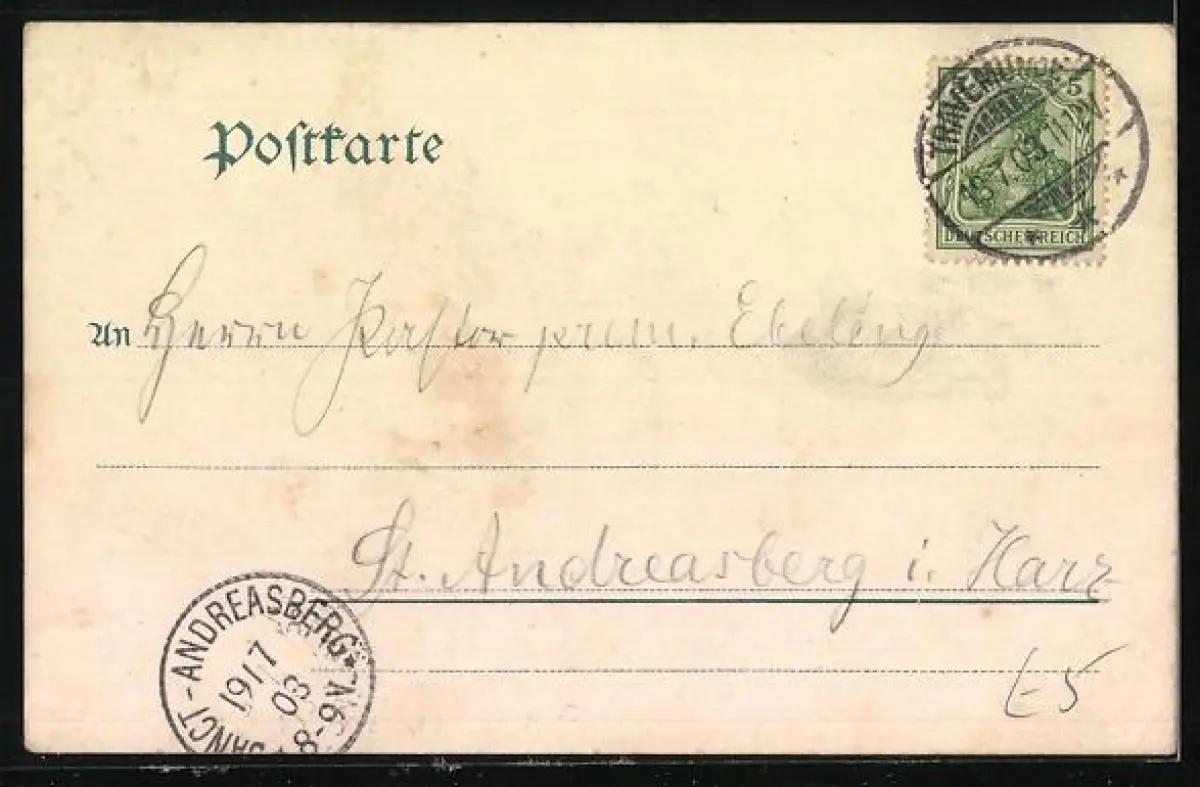 Postkarte
TRAVEMÜNDE
5
.7.03
DEUTSCHES REICH
An Herrn Pastor prim. Ebeling
St. Andreasberg i. Harz
SANCT-ANDREASBERG
19/7
03
8-9V.
E5